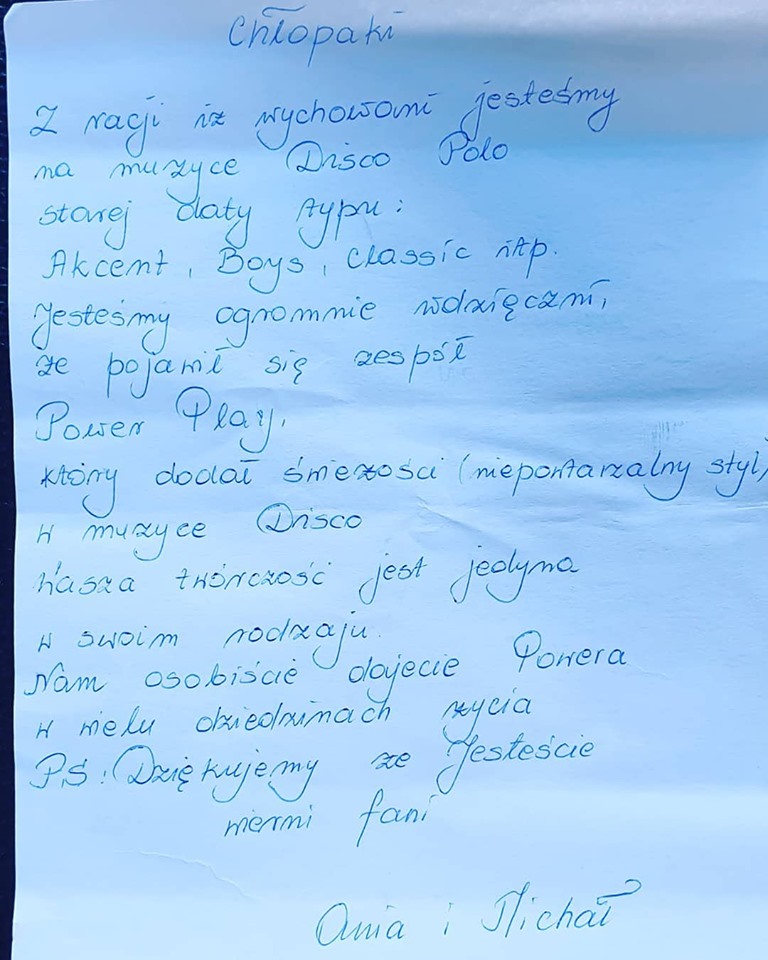 Chłopaki
Z racji iż wychowani jesteśmy
na muzyce Disco Polo
starej daty typu:
Akcent, Boys, Classic itp.
Jesteśmy ogromnie wdzięczni,
że pojawił się zespół
Power Play,
który dodał świeżości (niepowtarzalny styl)
w muzyce Disco
Wasza twórczość jest jedyna
w swoim rodzaju.
Nam osobiście dajecie Powera
w wielu dziedzinach życia
PS: Dziękujemy że Jesteście
wierni fani
Ania i Michał